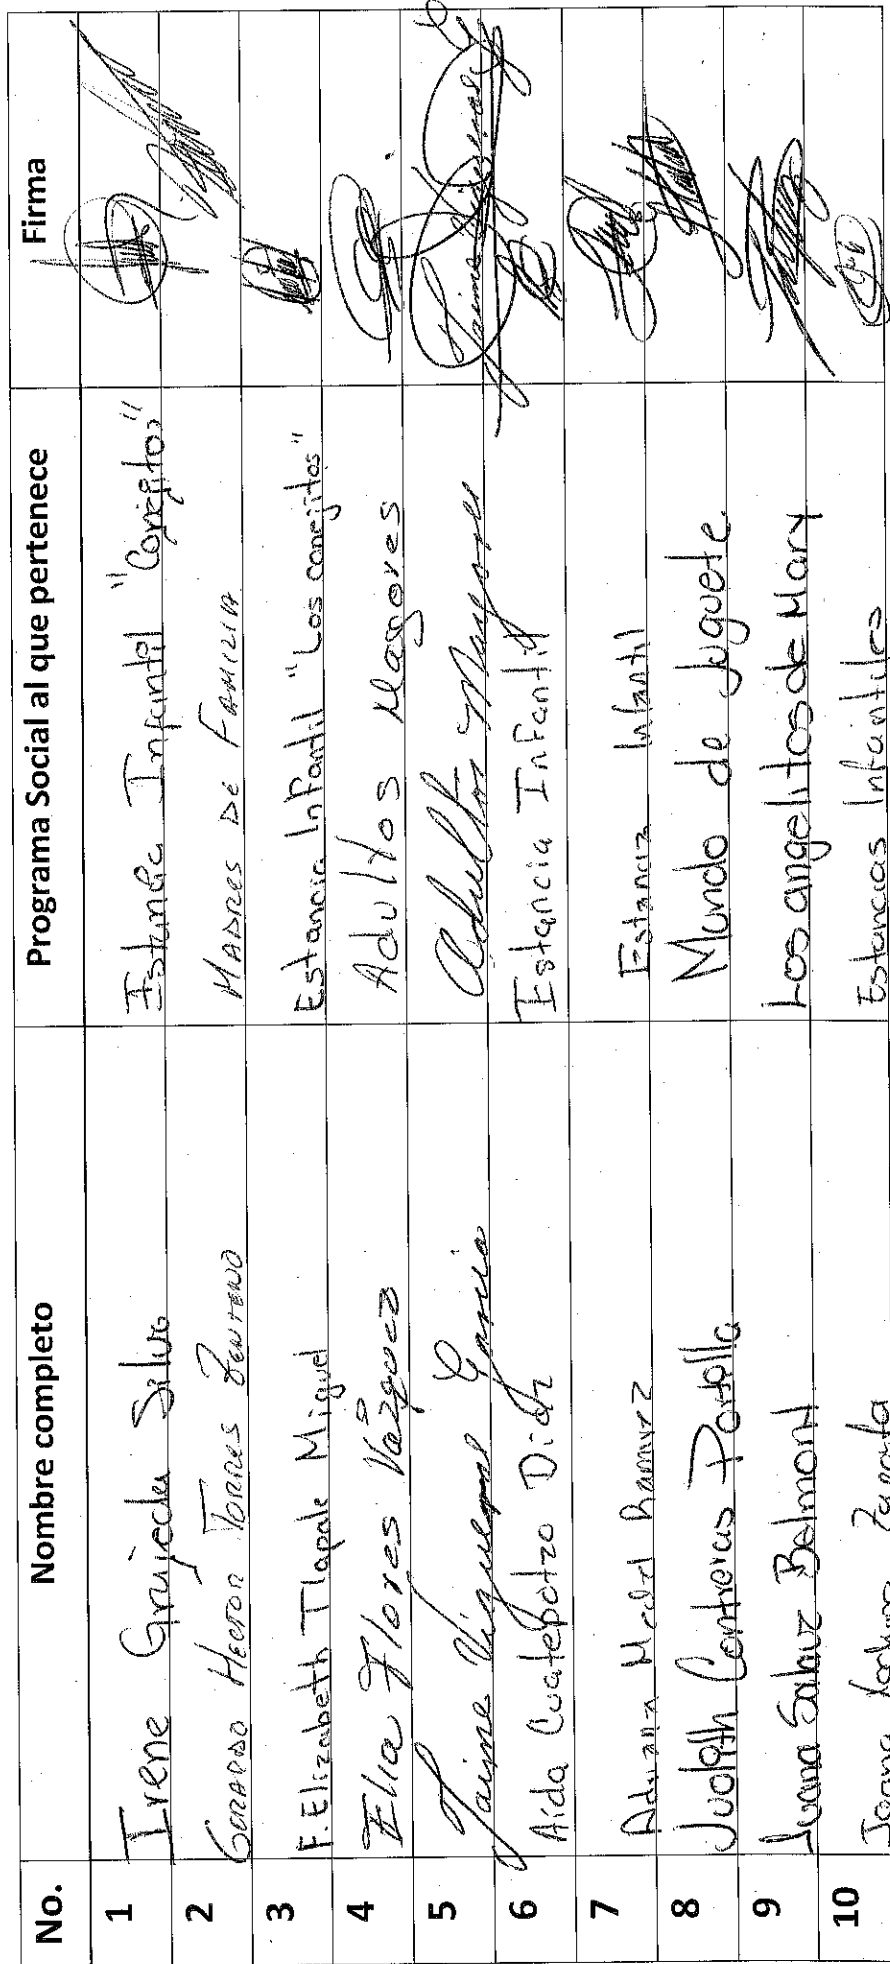 No. Nombre completo Programa Social al que pertenece Firma
1 Irene Grajeda Silva Estancia Infantil "Conejitos"
2 GERARDO HECTOR TORRES ZENTENO MADRES DE FAMILIA
3 F. Elizabeth Tlapale Miguel Estancia Infantil "Los conejitos"
4 Elia Flores Vázquez Adultos Mayores
5 Jaime Garcia Adultos Mayores
6 Aida Cuatepotzo Diaz Estancia Infantil
7 Adriana Ramirez Estancia Infantil
8 Judith Contreras Portella Mundo de Juguete.
9 Juana Belmont Los angelitos de Mary
10 Zapata Estancias Infantiles